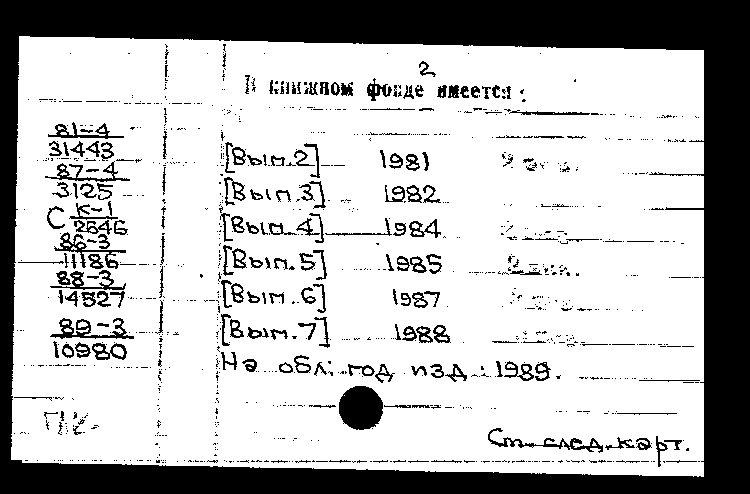 2
В книжном фонде имеется:
81-4
31443
[Вып.2] 1981 2 экз.
87-4
3125
[Вып.3] 1982
С К-1
2646
[Вып.4] 1984 2 экз.
86-3
11186
[Вып.5] 1985 2 экз.
88-3
14527
[Вып.6] 1987 2 экз.
89-3
10980
[Вып.7] 1988 экз.
На обл: год изд.: 1989.
См. след. карт.